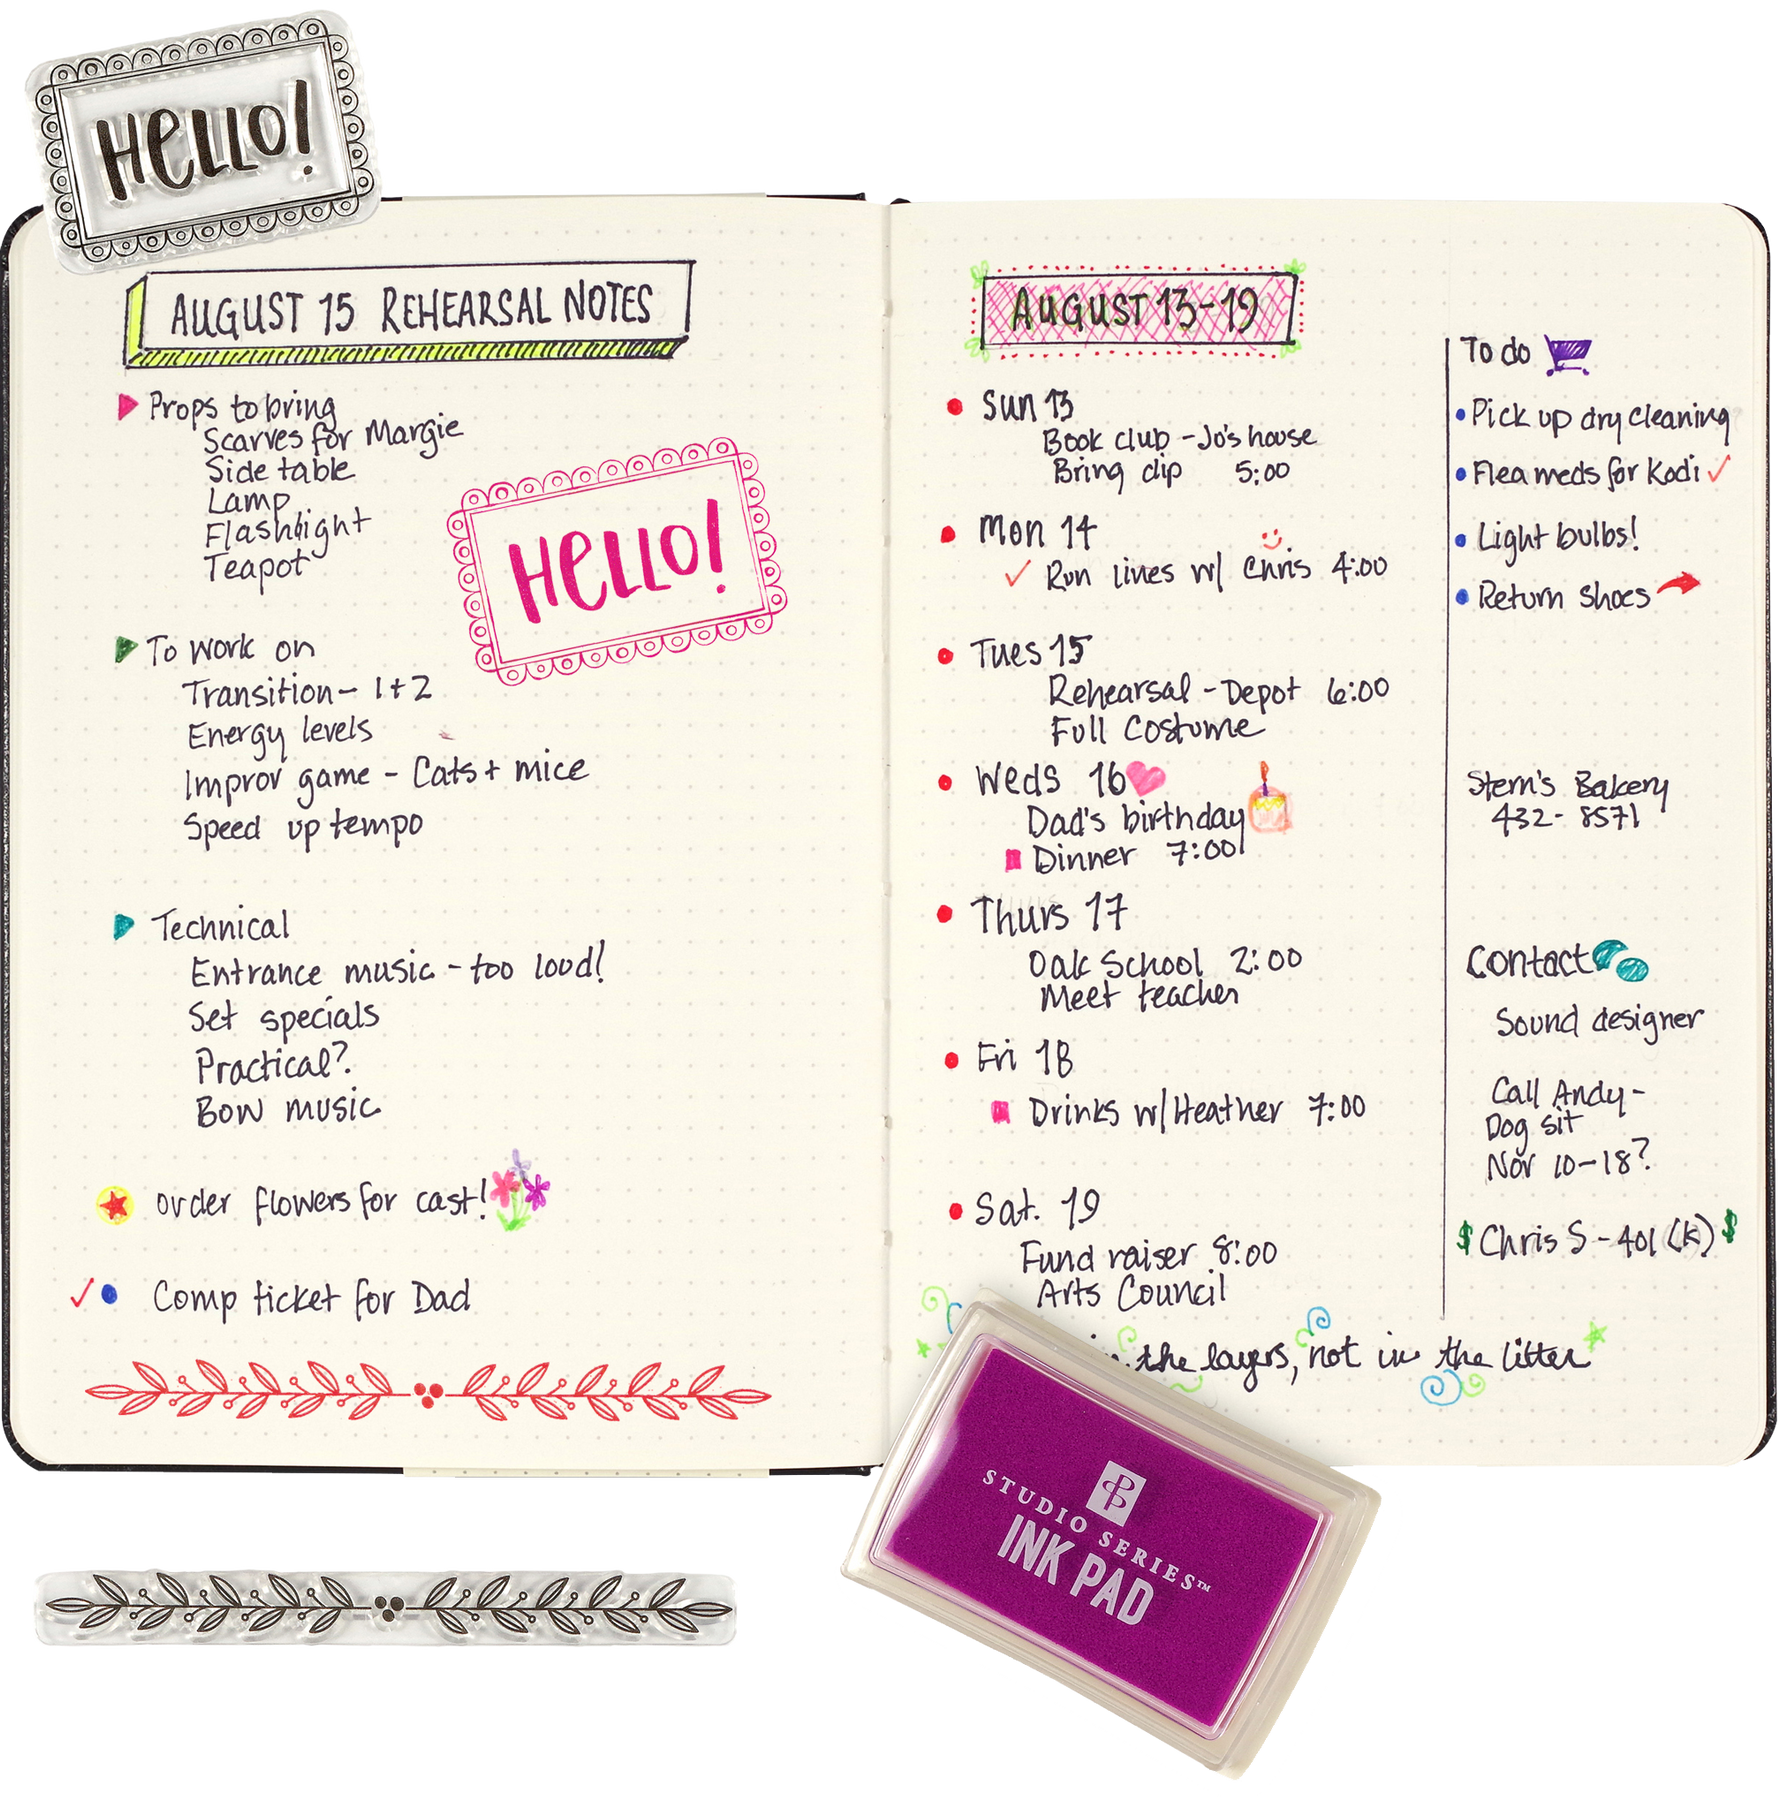 HELLO!
AUGUST 15 REHEARSAL NOTES
Props to bring
Scarves for Margie
Side table
Lamp
Flashlight
Teapot
HELLO!
To work on
Transition - 1+2
Energy levels
Improv game - Cats + mice
Speed up tempo
Technical
Entrance music - too loud!
Set specials
Practical?
Bow music
order flowers for cast!
Comp ticket for Dad
AUGUST 13-19
Sun 13
Book club - Jo's house
Bring dip 5:00
Mon 14
Run lines w/ Chris 4:00
Tues 15
Rehearsal - Depot 6:00
Full Costume
Weds 16
Dad's birthday
Dinner 7:00
Thurs 17
Oak School 2:00
Meet teacher
Fri 18
Drinks w/ Heather 7:00
Sat. 19
Fund raiser 8:00
Arts Council
To do
Pick up dry cleaning
Flea meds for Kodi
Light bulbs!
Return shoes
Stern's Bakery
432-8571
Contact
Sound designer
Call Andy -
Dog sit
Nov 10-18?
$ Chris S - 401(k) $
in the layers, not in the litter
STUDIO SERIES™
INK PAD